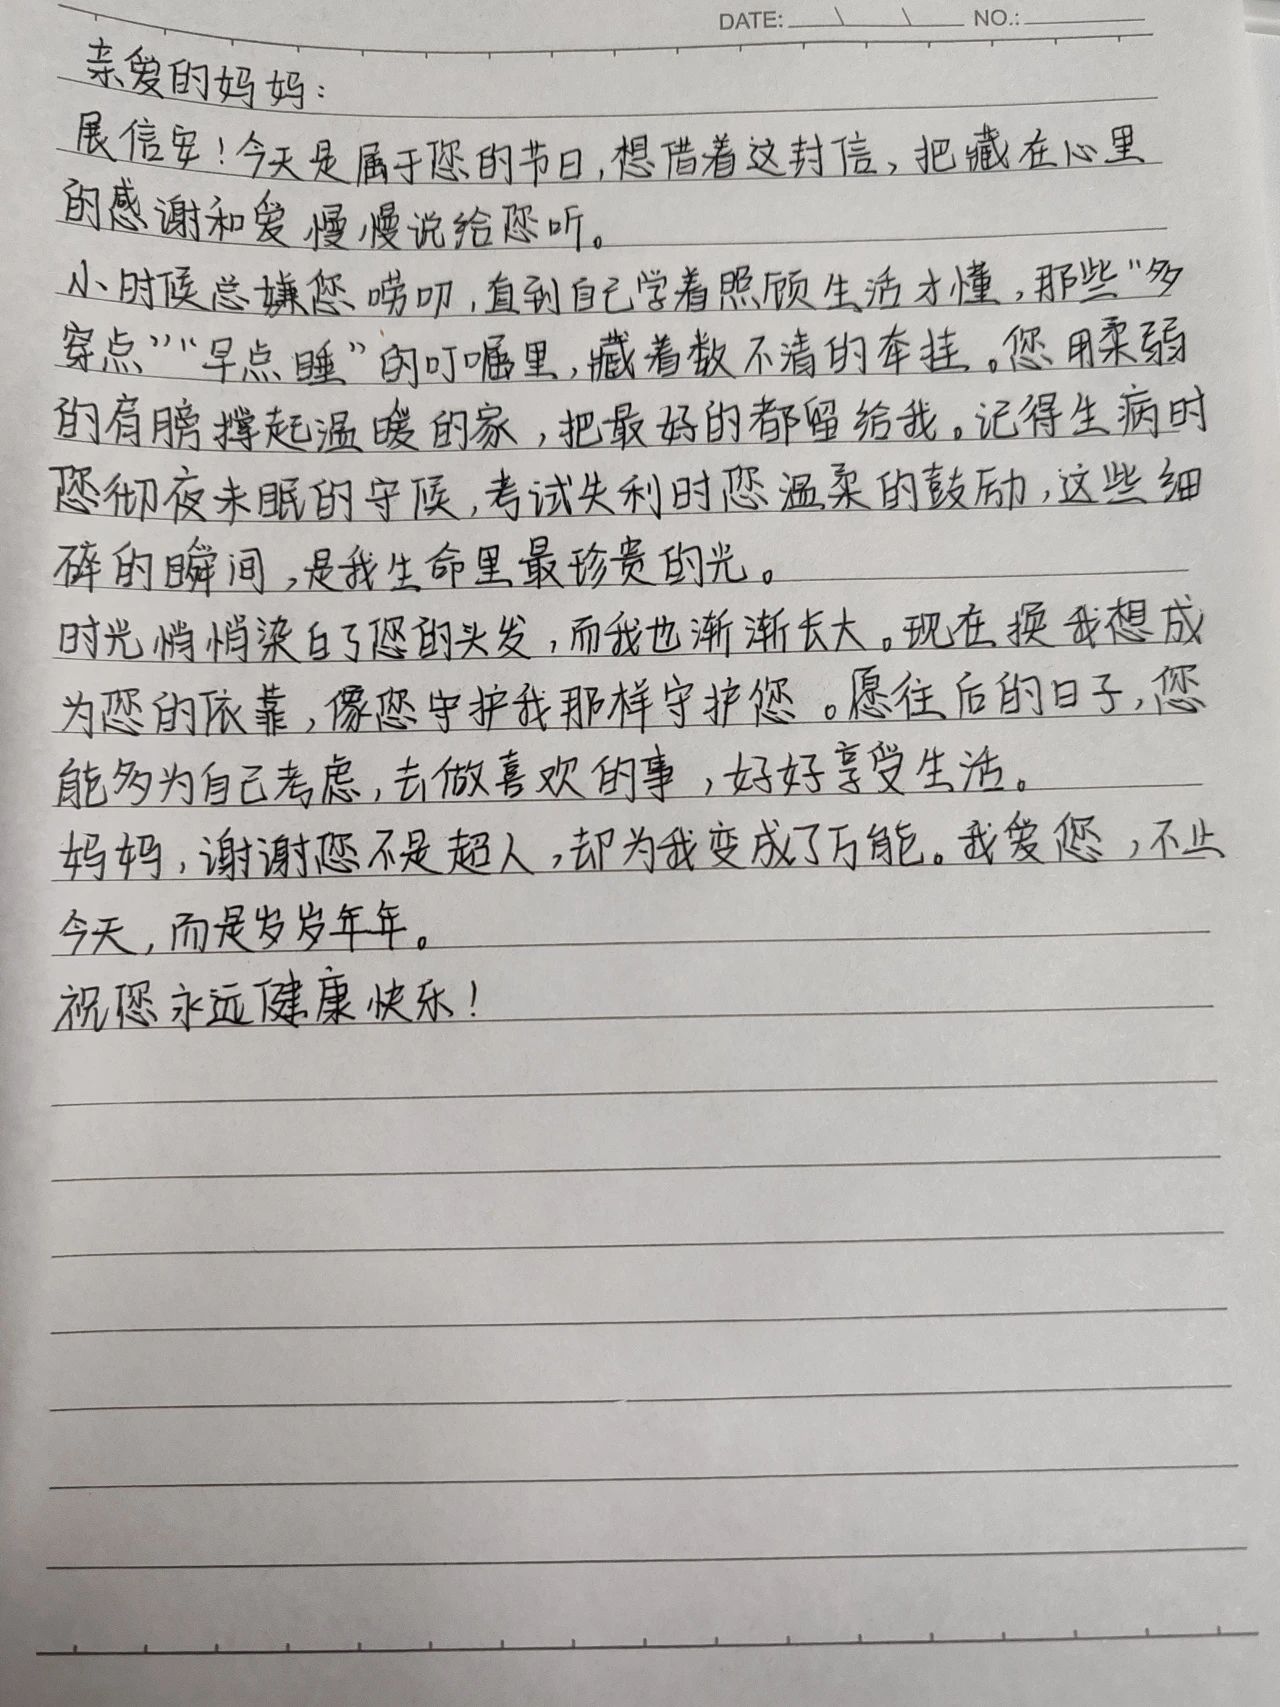 DATE: \ \ NO.:
亲爱的妈妈：
展信安！今天是属于您的节日，想借着这封信，把藏在心里
的感谢和爱，慢慢说给您听。
小时候总嫌您唠叨，直到自己学着照顾生活才懂，那些“多
穿点”“早点睡”的叮嘱里，藏着数不清的牵挂。您用柔弱
的肩膀撑起温暖的家，把最好的都留给我。记得生病时
您彻夜未眠的守候，考试失利时您温柔的鼓励，这些细
碎的瞬间，是我生命里最珍贵的光。
时光悄悄染白了您的头发，而我也渐渐长大。现在换我想成
为您的依靠，像您守护我那样守护您。愿往后的日子，您
能多为自己考虑，去做喜欢的事，好好享受生活。
妈妈，谢谢您不是超人，却为我变成了万能。我爱您，不止
今天，而是岁岁年年。
祝您永远健康快乐！